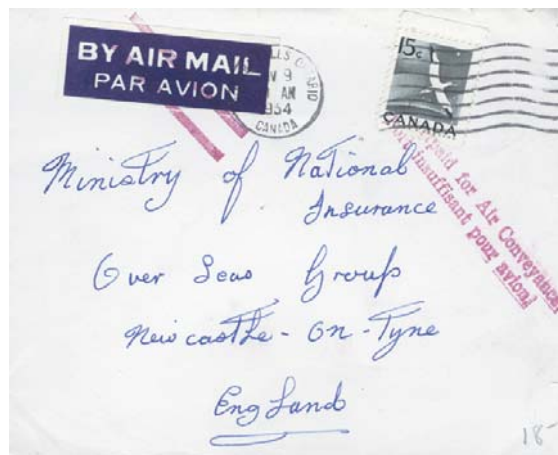 BY AIR MAIL
PAR AVION
LLS ONTARIO
N 9
AM
1954
CANADA
15c
CANADA
paid for Air Conveyance
insuffisant pour avion
Ministry of National
Insurance
Over Seas Group
Newcastle-on-Tyne
England
18-